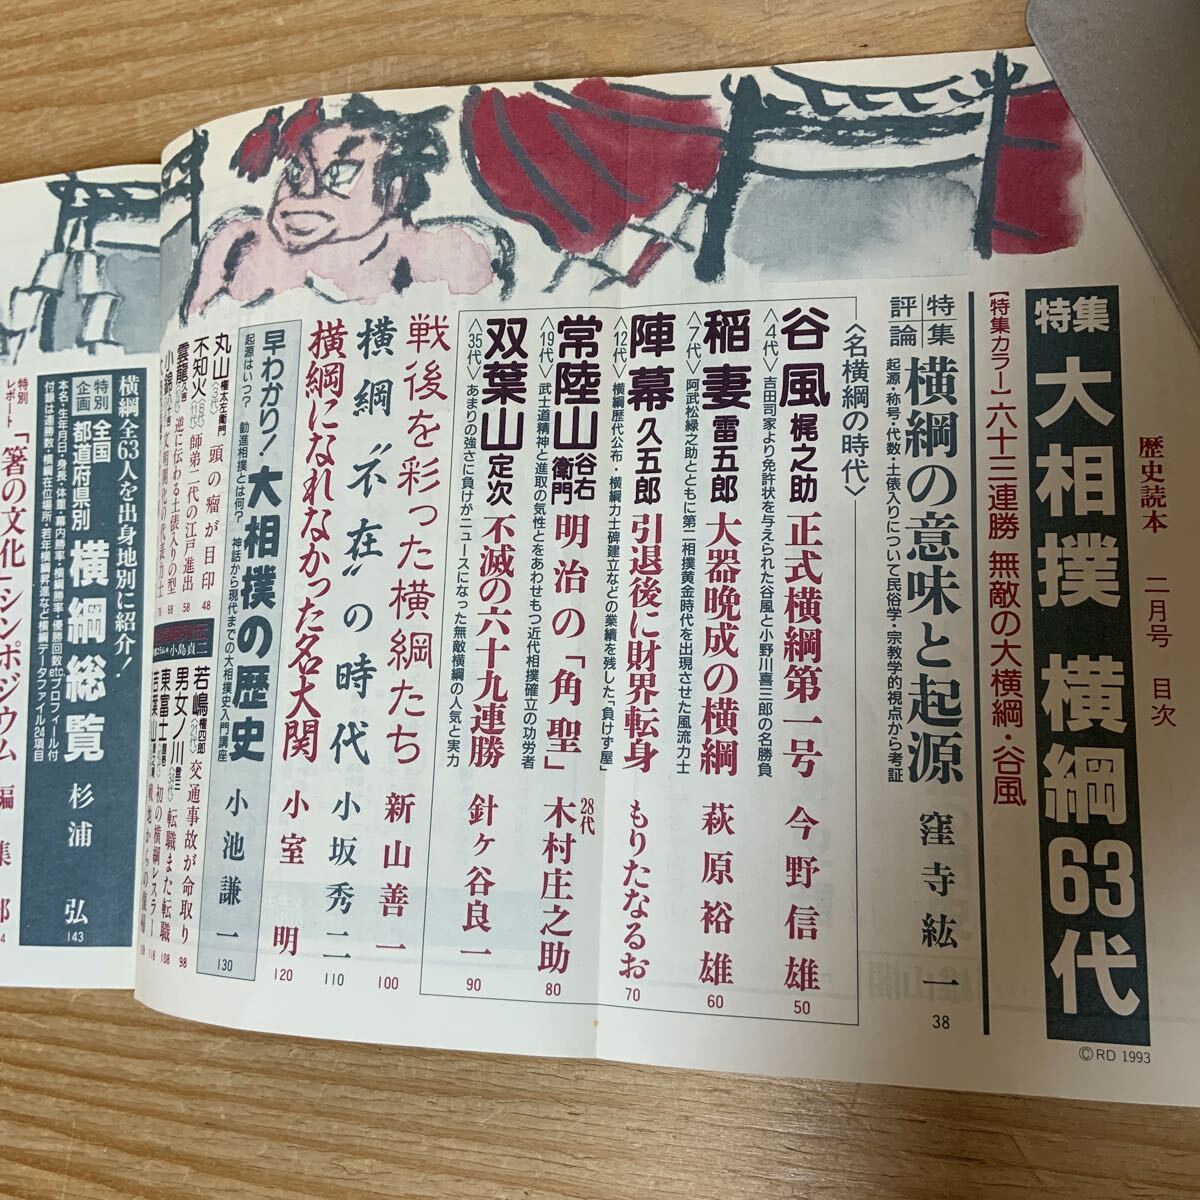 歴史読本 二月号 目次
特集 大相撲 横綱63代
【特集カラー】六十三連勝 無敵の大横綱・谷風
特集評論 横綱の意味と起源 窪寺紘一 38
起源・称号・代数・土俵入りについて民俗学・宗教学的視点から考証
〈名横綱の時代〉
谷風梶之助 正式横綱第一号 今野信雄 50
〈4代〉 吉田司家より免許状を与えられた谷風と小野川喜三郎の名勝負
稲妻雷五郎 大器晩成の横綱 萩原裕雄 60
〈7代〉 阿武松緑之助とともに第二相撲黄金時代を出現させた風流力士
陣幕久五郎 引退後に財界転身 もりたなるお 70
〈12代〉 横綱歴代公布・横綱力士碑建立などの業績を残した「負けず屋」
常陸山谷右衛門 明治の「角聖」 28代 木村庄之助 80
〈19代〉 武士道精神と進取の気性とをあわせもつ近代相撲確立の功労者
双葉山定次 不滅の六十九連勝 針ヶ谷良一 90
〈35代〉 あまりの強さに負けがニュースになった無敵横綱の人気と実力
戦後を彩った横綱たち 新山善一 100
横綱“不在”の時代 小坂秀二 110
横綱になれなかった名大関 小室明 120
早わかり！大相撲の歴史 小池謙一 130
起源はいつ？ 勧進相撲とは何？ 神話から現代までの大相撲史入門講座
丸山権太左衛門〈3代〉 頭の瘤が目印 48
不知火 師弟二代の江戸進出 58
雲龍 逆に伝わる土俵入りの型 68
小錦 文明開化の代表力士 78
小島貞二
若嶋権四郎〈21代〉 交通事故が命取り 98
男女ノ川登三〈34代〉 転職また転職 108
東富士 初の横綱レスラー 118
若葉山
横綱全63人を出身地別に紹介！
特別企画 全国都道府県別 横綱総覧 杉浦弘 143
本名・生年月日・身長・体重・幕内勝率・横綱勝率・優勝回数etc.プロフィール付
付録は連勝数・横綱在位場所・若年横綱昇進など横綱データファイル24項目
特別レポート 「箸の文化」シンポジウム 編集部
©RD 1993